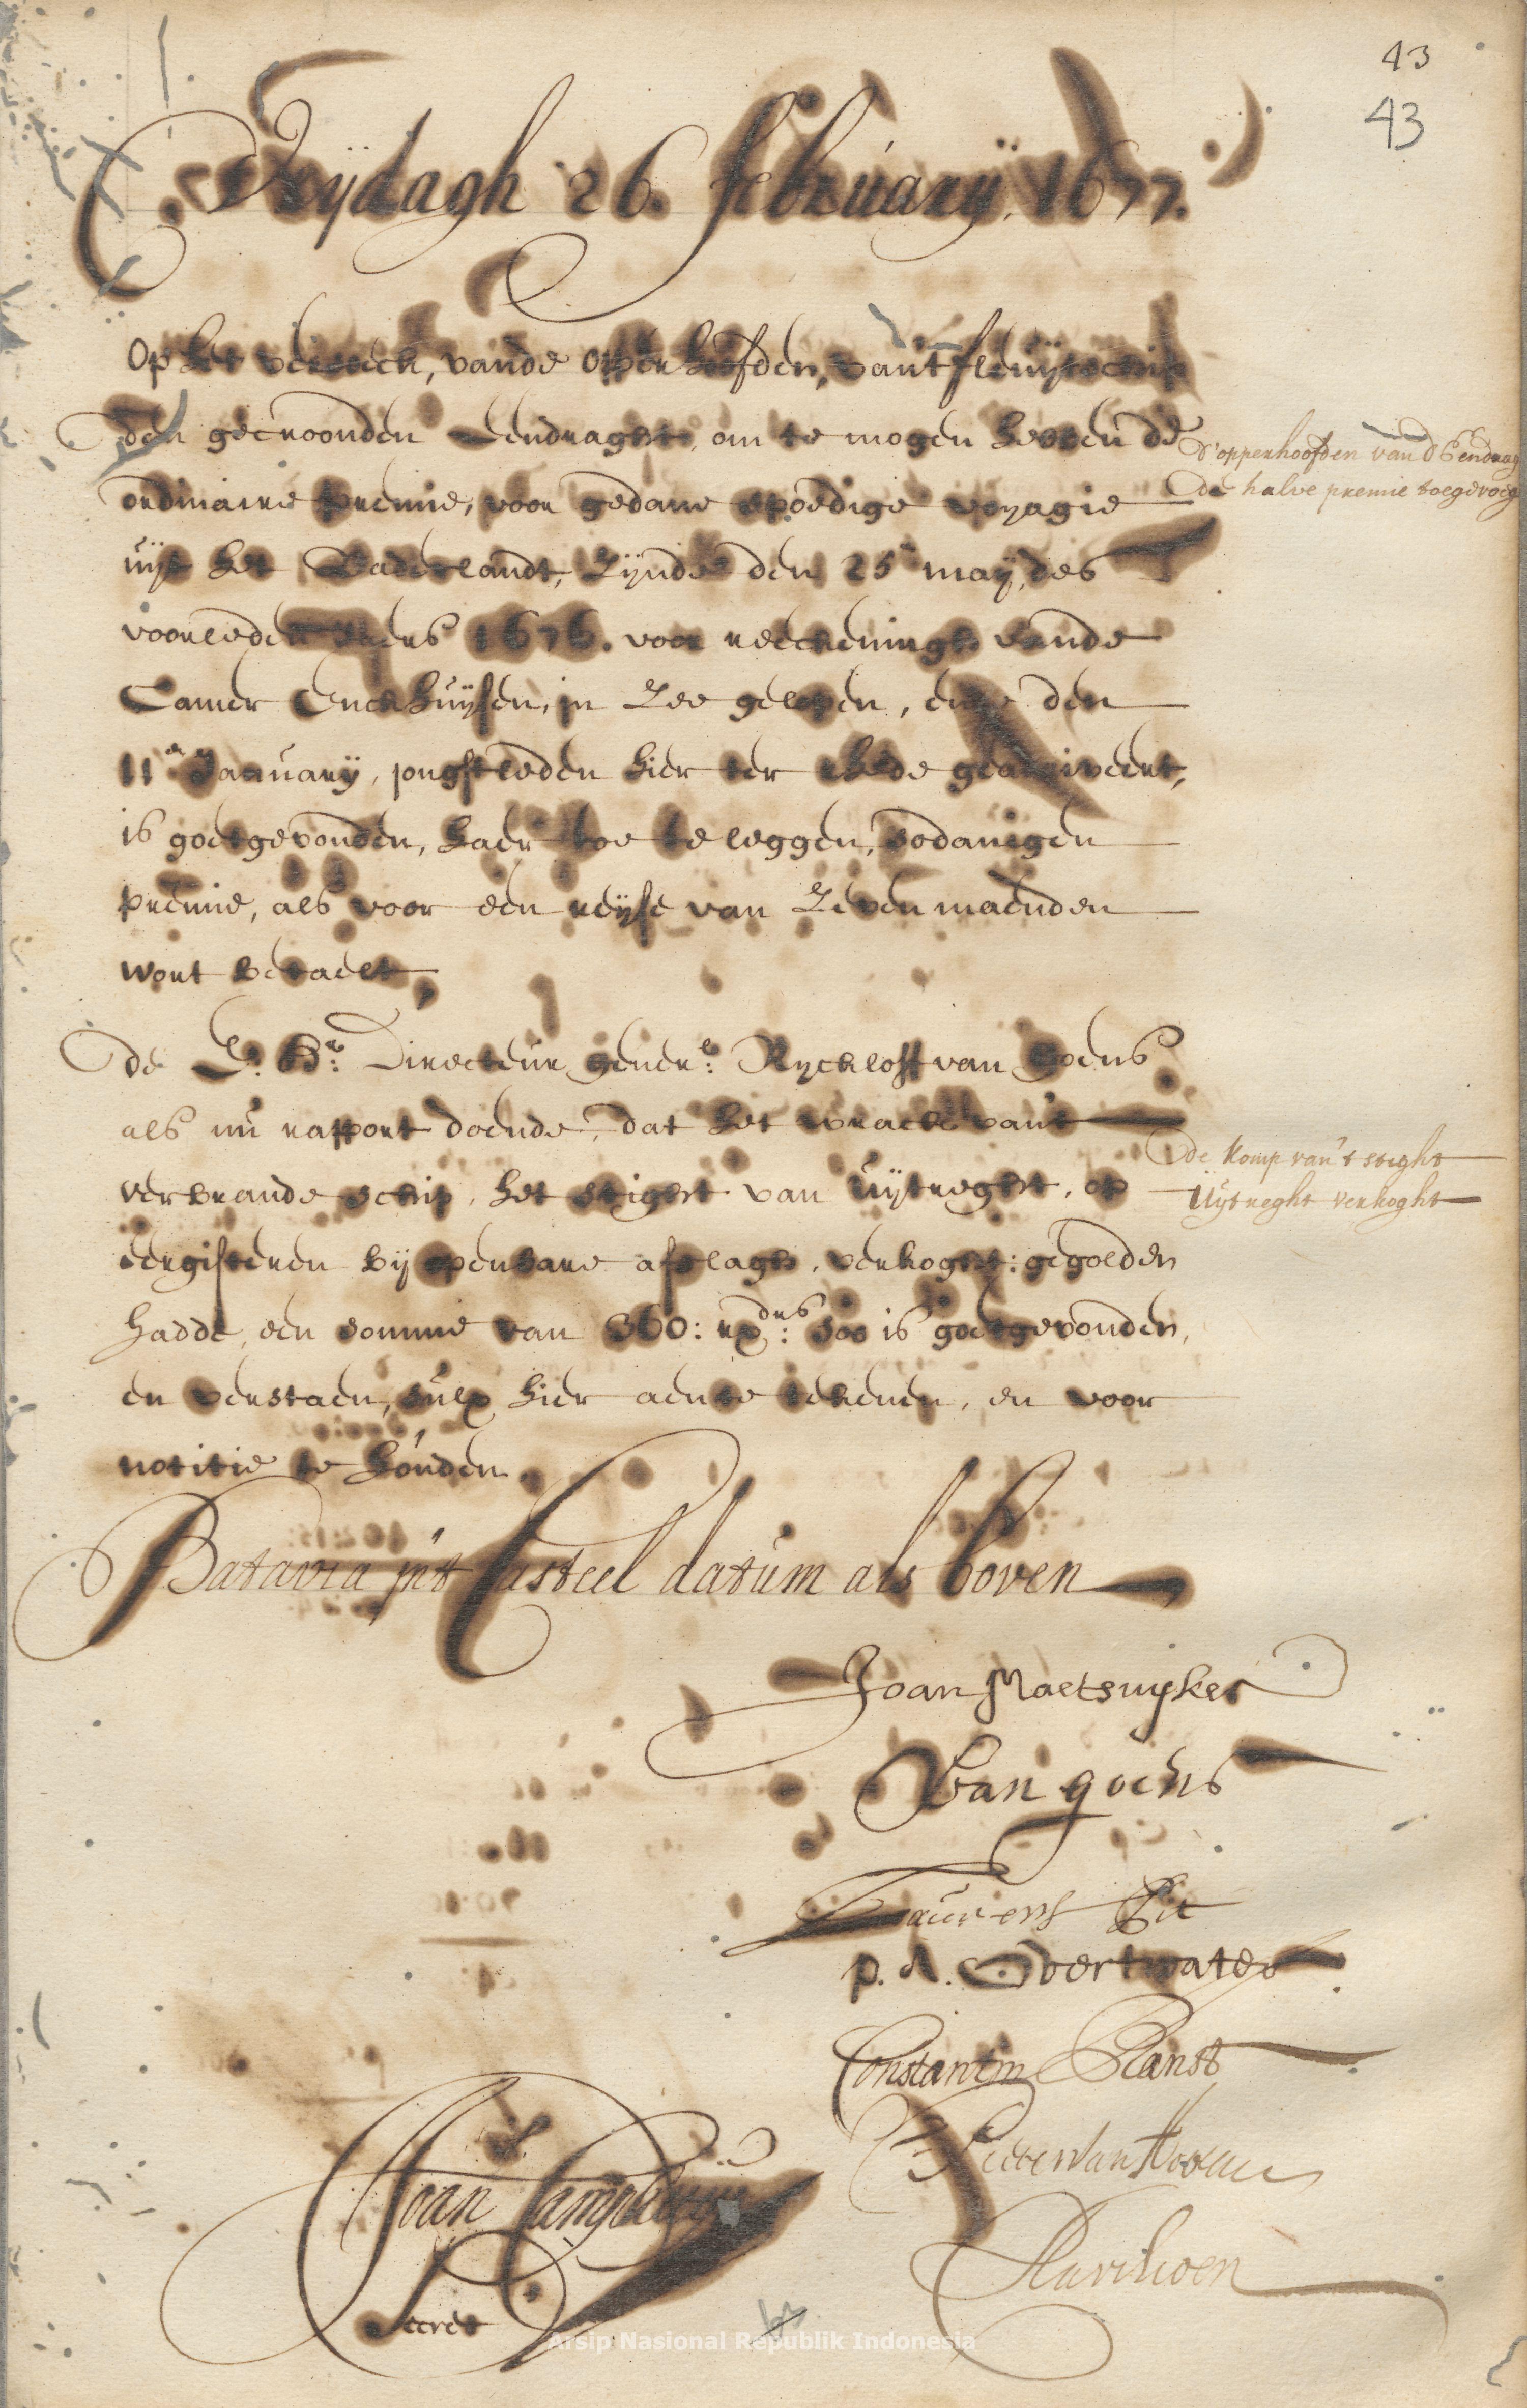 43
43
Vrijdagh 26. februarij. 1677.
Op het versoeck, vande opperhoofden, van't fluijtschip
den gecroonden Eendraght, om te mogen hebben de
ordinaire premie, voor gedane spoedige voyagie
uijt het Vaderlandt, zijnde den 25en maij, des
voorleden jaers 1676. voor reeckeningh vande
Camer Enckhuijsen, in Zee gelopen, ende den
11en Januarij, jongstleden hier ter rheede gearriveert,
is goetgevonden, haer toe te leggen, sodanigen
premie, als voor een reijse van Zeven maenden
wort betaelt,
D'opperhoofden van d'Eendrag
de halve premie toegevoegt
De E. Hr. Directeur gener.l Ryckloff van Goens
als nu rapport doende, dat het wrack van't
verbrande schip, het stight van uijtreght, op
eergisteren bij openbare afslagh, verkoght: gegolden
hadde, een somme van 360: rxds: soo is goetgevonden,
en verstaen, sulx hier aen te tekenen, en voor
notitie te houden.
de komp van't stight
Uijtreght verkoght
Batavia in't Casteel datum als boven
Joan Maetsuyker
Van goens
Laurens Pit
p. A. Overtwater
Constantin Ranst
Pieter van Hoorn
Pavilioen
Joan Camphuijs
Secret
Arsip Nasional Republik Indonesia